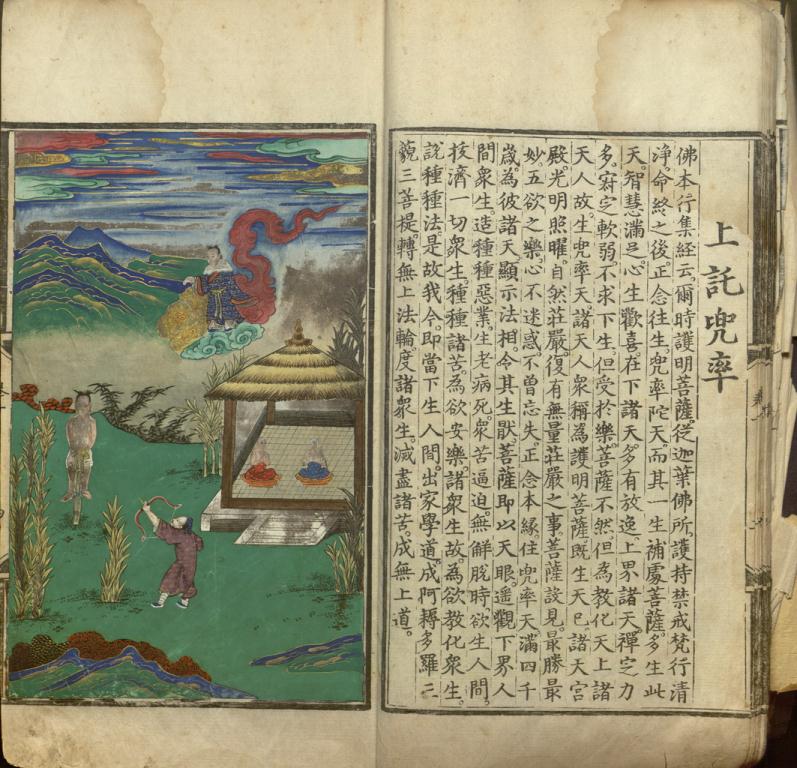 上託兜率
佛本行集經云。爾時護明菩薩。從迦葉佛所護持禁戒梵行清
淨。命終之後正念往生兜率陀天。而其一生補處菩薩。多生此
天。智慧滿足。心生歡喜。在下諸天。多有放逸。上界諸天。禪定力
多。寂定軟弱。不求下生。但受於樂。菩薩不然。但為教化天上諸
天人故。生兜率天。諸天人眾稱為護明菩薩。既生天已。諸天宮
殿。光明照曜。自然莊嚴。復有無量莊嚴之事。菩薩設見最勝最
妙五欲之樂。心不迷惑。不曾忘失。正念本緣。住兜率天。滿四千
歲。為彼諸天顯示法相。令其生猒。菩薩即以天眼。遥觀下界人
間眾生。造種種惡業。生老病死。眾苦逼迫。無解脫時。欲生人間。
拔濟一切眾生。種種諸苦。為欲安樂。諸眾生故。為欲教化眾生。
說種種法。是故我今。即當下生人間。出家學道。成阿耨多羅三
藐三菩提。轉無上法輪。度諸眾生。滅盡諸苦。成無上道。